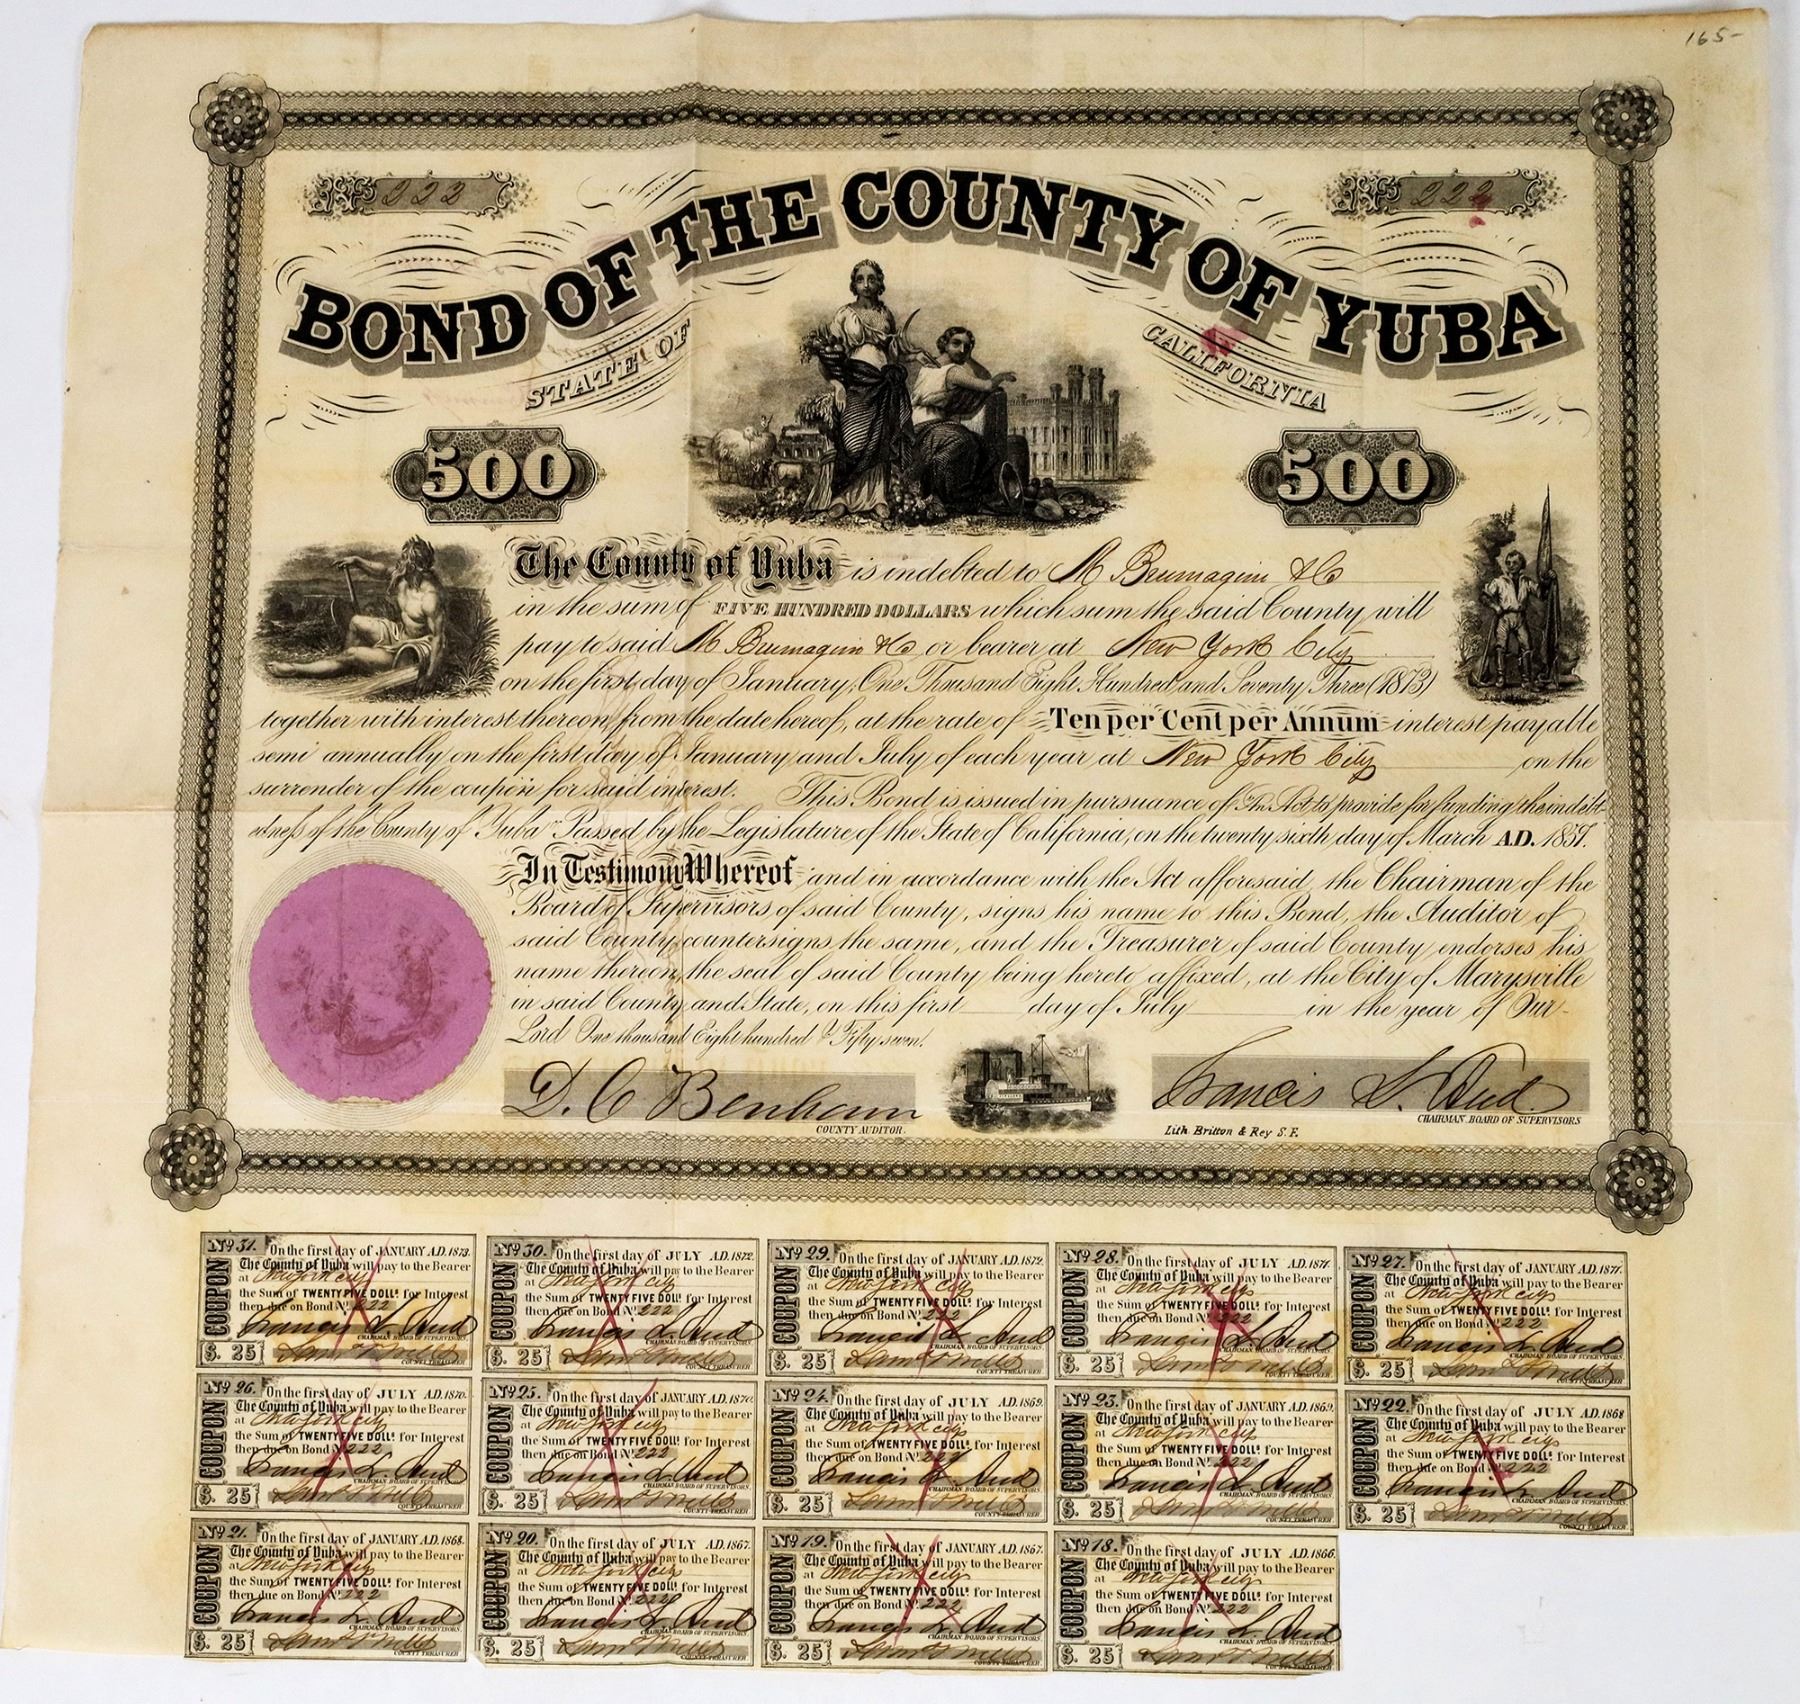 165-
Nº 222
Nº 222
BOND OF THE COUNTY OF YUBA
STATE OF CALIFORNIA
500
500
The County of Yuba is indebted to M Brumagim & Co
in the sum of FIVE HUNDRED DOLLARS which sum the said County will
pay to said M Brumagim & Co or bearer at New York City
on the first day of January, One Thousand Eight Hundred and Seventy Three (1873)
together with interest thereon from the date hereof, at the rate of Ten per Cent per Annum interest payable
semi annually on the first day of January and July of each year at New York City on the
surrender of the coupon for said interest. This Bond is issued in pursuance of "An Act to provide for funding the indebt-
edness of the County of Yuba" Passed by the Legislature of the State of California, on the twenty sixth day of March A.D. 1857.
In Testimony Whereof and in accordance with the Act afforesaid, the Chairman of the
Board of Supervisors, of said County, signs his name to this Bond, the Auditor of
said County countersigns the same, and the Treasurer of said County endorses his
name thereon, the seal of said County being hereto affixed, at the City of Marysville
in said County and State, on this first day of July in the year of Our
Lord One thousand Eight hundred & Fifty seven.
D. C Benham
COUNTY AUDITOR.
Lith Britton & Rey S.F.
Francis L. Aud
CHAIRMAN BOARD OF SUPERVISORS
COUPON
Nº 31. On the first day of JANUARY A.D. 1873.
The County of Yuba will pay to the Bearer
at New York City
the Sum of TWENTY FIVE DOLLs. for Interest
then due on Bond Nº 222
Francis L. Aud
CHAIRMAN BOARD OF SUPERVISORS.
$. 25
COUNTY TREASURER
COUPON
Nº 30. On the first day of JULY A.D. 1872.
The County of Yuba will pay to the Bearer
at New York City
the Sum of TWENTY FIVE DOLLs. for Interest
then due on Bond Nº 222
Francis L. Aud
CHAIRMAN BOARD OF SUPERVISORS.
$. 25
COUNTY TREASURER
COUPON
Nº 29. On the first day of JANUARY A.D. 1872.
The County of Yuba will pay to the Bearer
at New York City
the Sum of TWENTY FIVE DOLLs. for Interest
then due on Bond Nº 222
Francis L. Aud
CHAIRMAN BOARD OF SUPERVISORS.
$. 25
COUNTY TREASURER
COUPON
Nº 28. On the first day of JULY A.D. 1871.
The County of Yuba will pay to the Bearer
at New York City
the Sum of TWENTY FIVE DOLLs. for Interest
then due on Bond Nº 222
Francis L. Aud
CHAIRMAN BOARD OF SUPERVISORS.
$. 25
COUNTY TREASURER
COUPON
Nº 27. On the first day of JANUARY A.D. 1871.
The County of Yuba will pay to the Bearer
at New York City
the Sum of TWENTY FIVE DOLLs. for Interest
then due on Bond Nº 222
Francis L. Aud
CHAIRMAN BOARD OF SUPERVISORS.
$. 25
COUNTY TREASURER
COUPON
Nº 26. On the first day of JULY A.D. 1870.
The County of Yuba will pay to the Bearer
at New York City
the Sum of TWENTY FIVE DOLLs. for Interest
then due on Bond Nº 222
Francis L. Aud
CHAIRMAN BOARD OF SUPERVISORS.
$. 25
COUNTY TREASURER
COUPON
Nº 25. On the first day of JANUARY A.D. 1870.
The County of Yuba will pay to the Bearer
at New York City
the Sum of TWENTY FIVE DOLLs. for Interest
then due on Bond Nº 222
Francis L. Aud
CHAIRMAN BOARD OF SUPERVISORS.
$. 25
COUNTY TREASURER
COUPON
Nº 24. On the first day of JULY A.D. 1869.
The County of Yuba will pay to the Bearer
at New York City
the Sum of TWENTY FIVE DOLLs. for Interest
then due on Bond Nº 222
Francis L. Aud
CHAIRMAN BOARD OF SUPERVISORS.
$. 25
COUNTY TREASURER
COUPON
Nº 23. On the first day of JANUARY A.D. 1869.
The County of Yuba will pay to the Bearer
at New York City
the Sum of TWENTY FIVE DOLLs. for Interest
then due on Bond Nº 222
Francis L. Aud
CHAIRMAN BOARD OF SUPERVISORS.
$. 25
COUNTY TREASURER
COUPON
Nº 22. On the first day of JULY A.D. 1868
The County of Yuba will pay to the Bearer
at New York City
the Sum of TWENTY FIVE DOLLs. for Interest
then due on Bond Nº 222
Francis L. Aud
CHAIRMAN BOARD OF SUPERVISORS.
$. 25
COUNTY TREASURER
COUPON
Nº 21. On the first day of JANUARY A.D. 1868.
The County of Yuba will pay to the Bearer
at New York City
the Sum of TWENTY FIVE DOLLs. for Interest
then due on Bond Nº 222
Francis L. Aud
CHAIRMAN BOARD OF SUPERVISORS.
$. 25
COUNTY TREASURER
COUPON
Nº 20. On the first day of JULY A.D. 1867.
The County of Yuba will pay to the Bearer
at New York City
the Sum of TWENTY FIVE DOLLs. for Interest
then due on Bond Nº 222
Francis L. Aud
CHAIRMAN BOARD OF SUPERVISORS.
$. 25
COUNTY TREASURER
COUPON
Nº 19. On the first day of JANUARY A.D. 1867.
The County of Yuba will pay to the Bearer
at New York City
the Sum of TWENTY FIVE DOLLs. for Interest
then due on Bond Nº 222
Francis L. Aud
CHAIRMAN BOARD OF SUPERVISORS.
$. 25
COUNTY TREASURER
COUPON
Nº 18. On the first day of JULY A.D. 1866.
The County of Yuba will pay to the Bearer
at New York City
the Sum of TWENTY FIVE DOLLs. for Interest
then due on Bond Nº 222
Francis L. Aud
CHAIRMAN BOARD OF SUPERVISORS.
$. 25
COUNTY TREASURER